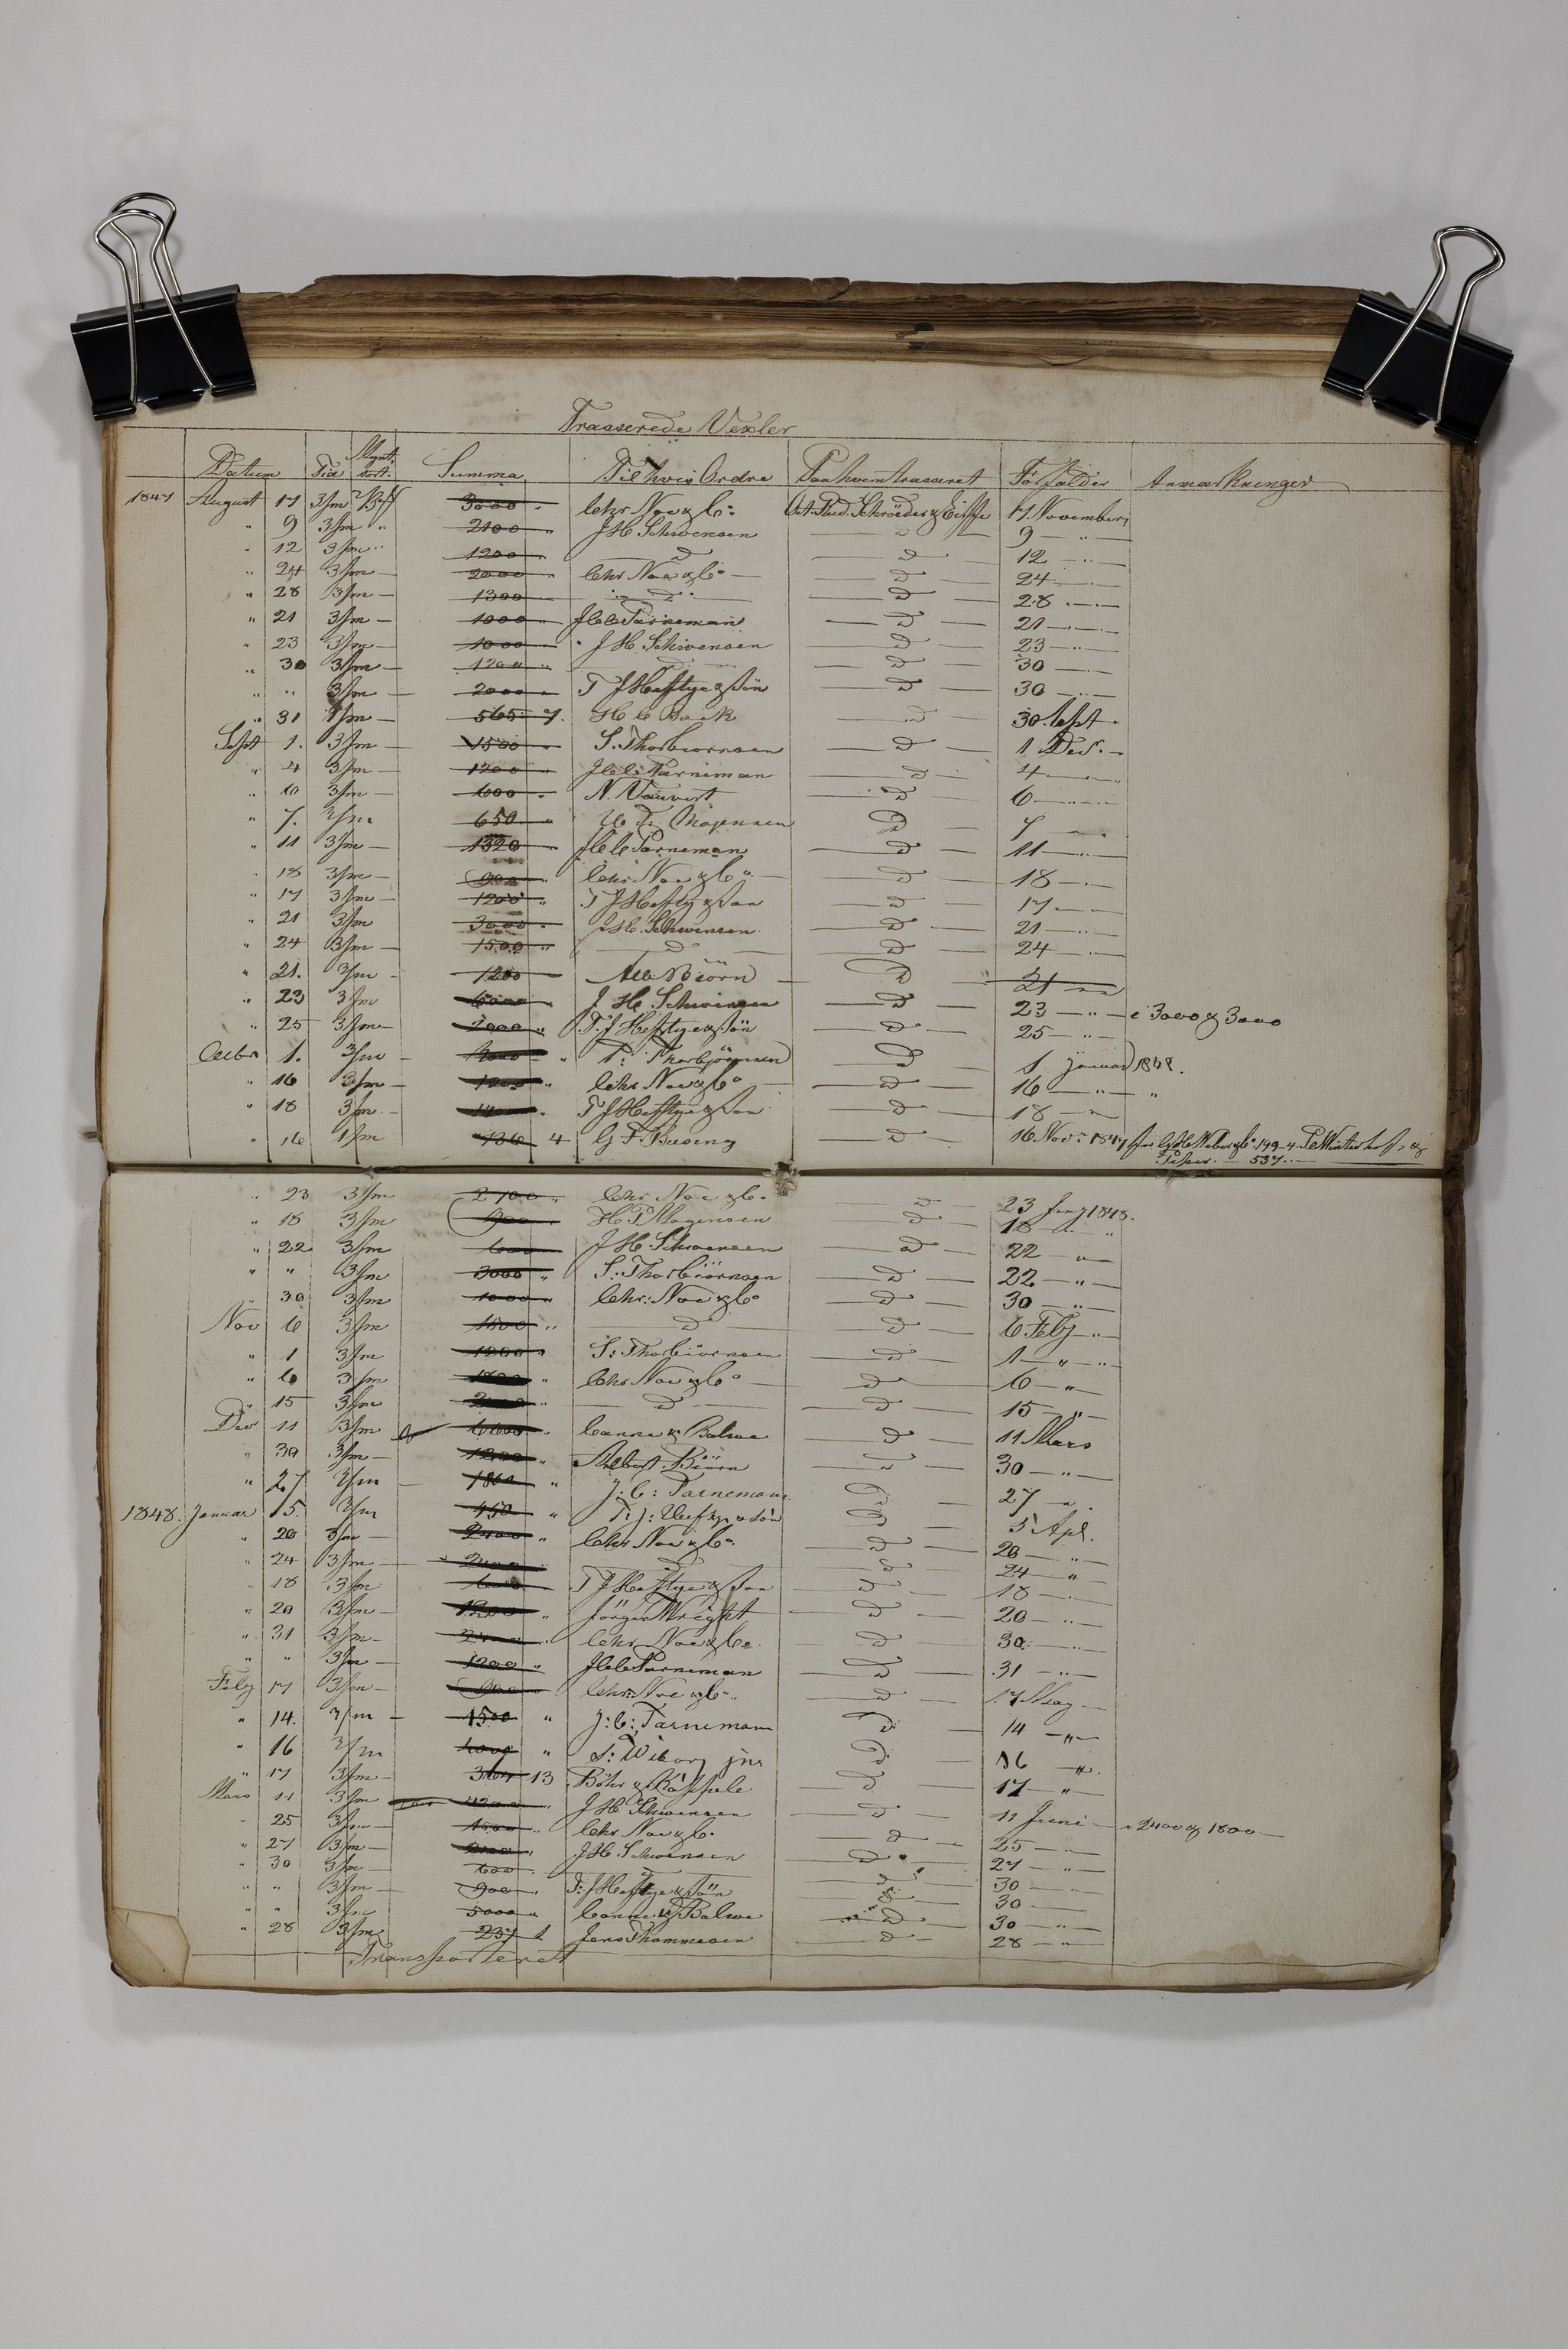 Trasserede Vexler
Datum Tid Mynt: sort: Summa Til hvis Ordre Paa hvem trasseret Forfalder Anmærkninger
1847 August 17 3/m 3000 " Chr Noe & Co: Ant. Rud. Schröder & Eiffe 17 November
" 9 3/m " 2100 " J H Schwensen d 9 — " —
" 12 3/m " 1200 " d d 12 — " —
" 24 3/m — 2000 " Chr Noe & Co — d 24 — " —
" 28 3/m — 1300 " d d 28 — " —
" 21 3/m — 1000 " J C C Parneman d 21 — " —
" 23 3/m — 1000 " J H Schwensen d 23 — " —
" 30 3/m — 1200 " d d 30 — " —
" " 3/m — 2000 " T J Heftye & Sön d 30 — " —
" 31 1/m — 565 7. H C Back d 30 Sept —
Sept 1. 3/m — 1500 " S. Thorbiornsen d 1 Dec. —
" 4 3/m — 1200 " J C C Parneman d 4 — "
" 6 3/m — 600 " N. Vauvert d 6 — " —
" 7. 3/m 650 " Mogensen d 7 — " .
" 11 3/m — 1320 " J C C Parneman d 11 — " —
" 18 3/m — 900 " Chr Noe & Co — d 18 — " —
" 17 3/m — 1200 " T J Hefty & Son d 17 — " —
" 21 3/m 3000 " J H. Schwensen d 21 — " —
" 24 3/m — 1500 " d d 24 — " —
" 21. 3/m — 1200 — Alb Biörn — d 21 — "
" 23 3/m 6000 " J H Schwensen d 23 — " — a 3000 & 3000
" 25 3/m — 2000 " T. J Heftye & Sön d 25 — " —
Octbr 1. 3/m — 3000 " Thorbjörnsen d 1 Januar 1848.
" 16 3/m — 1200 " Chr Noe & Co — d 16 — " — "
" 18 3/m — " T J Heftye & Son d 18 — "
" 16 1/m 136 4 G F Buseng d — 16 Nov: 1847 for G H Weber & Co 199-4. P Winter
537
" 23 3/m 2700 " Chr Noe & Co d — 23 Jany 1848.
" 18 3/m 900 — H P Mogensen d — 18 — "
" 22 3/m 600 — J H Schwensen d — 22 — " —
" " 3/m 3000 " S: Thorbiörnsen d — 22 — " —
" 30 3/m 1000 — Chr: Noe & Co d — 30 — " —
Nov 6 3/m 1500 " d d — 6 Feby — " —
" 1 3/m 1200 " S: Thorbiörnsen d — 1 — " — "
" 6 3/m 1800 " Chr Noe & Co — d — 6 — "
" 15 3/m " d d — 15 — " —
Dec 11 3/m 6000 " Canne & Balwe d 11 Mars
" 30 3/m — 1200 " Albert Biörn d — 30 — " —
" 27 3/m — 1800 " J: C: Parnemann. d 27 — " .
1848. Januar 15. 3/m 450 " T: J: Heftye & Sön d 5 Apl.
" 20 3/m — 2400 " Chr Noe & Co d — 20 — "
" 24 3/m — " d d — 24 — "
" 18 3/m 600 — T J Heftye & Son d — 18 — " —
" 20 3/m — 1200 " Jörgen Wright d — 20 — " —
" 31 3/m — " Chr Noe & Co. d — 30 — " —
" " 3/m — 1200 " J C C Parneman d — 31 — " —
Feby 17 3/m — 900 " Chr: Noe & Co. d — 17 May —
" 14. 3/m — 1500 " J: C: Parnemann d — 14 — " —
" 16 3/m " S: Wiborg jnr d — 16 — " .
" 17 3/m — 364 13 Böhr & Käppele d — 17 — "
Mars 11 3/m 4200 " J H Schwensen d — 11 Juni — a 2400 & 1800 —
" 25 3/m — 1500 " Chr Noe & Co d — 25 — " —
" 27 3/m — " J H Schwensen d — 27 — " —
" 30 3/m — 600 " d d — 30 — " —
" " 3/m — 900 " T: J Heftye & Sön d — 30 — " —
" " 3/m 5000 " Canne & Balwe d — 30 — " —
" 28 3/m 237 1 Jens Thommesen d — 28 — " —
Transporteret